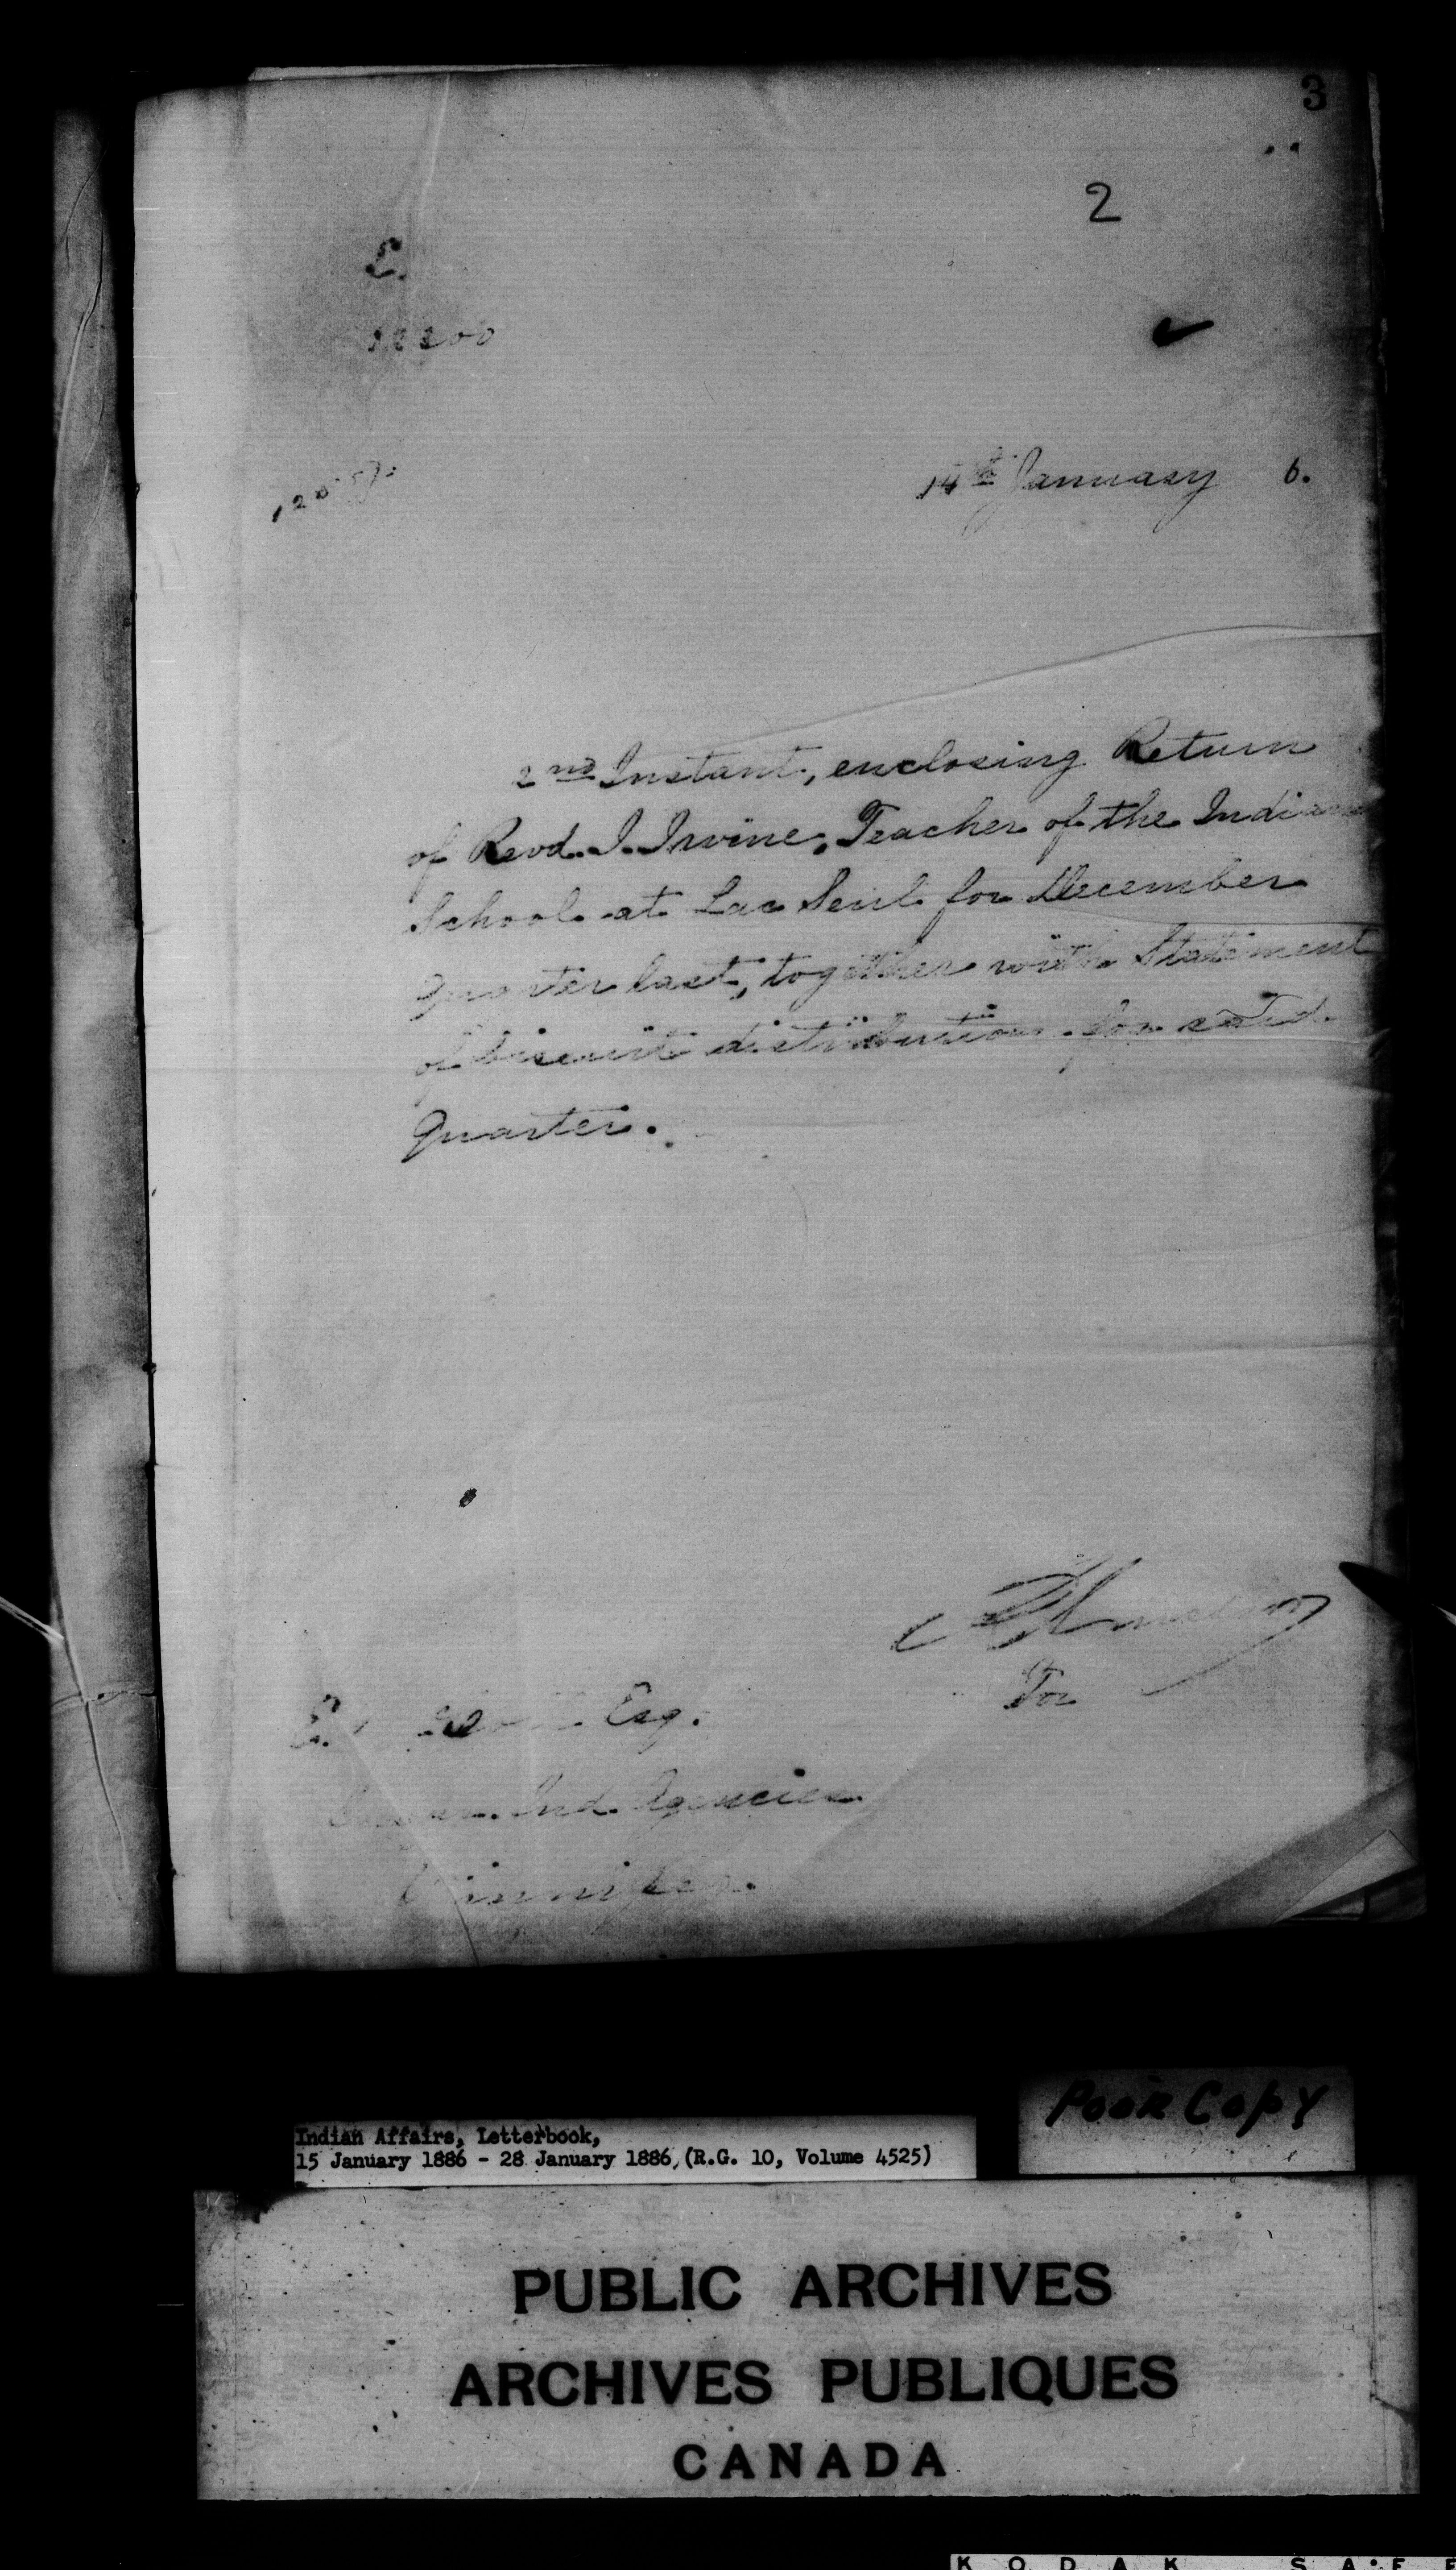 3
2
E.
14th January 6.
2nd Instant, enclosing Return
of Revd. J. Irvine, Teacher of the Indian
School at Lac Seul for December
Quarter last, together with Statement
of biscuit distribution for said
Quarter.
For
E. Esq.
Ind. Agencies
Winnipeg.
Poor Copy
Indian Affairs, Letterbook,
15 January 1886 - 28 January 1886, (R.G. 10, Volume 4525)
PUBLIC ARCHIVES
ARCHIVES PUBLIQUES
CANADA
KODAK SAFE